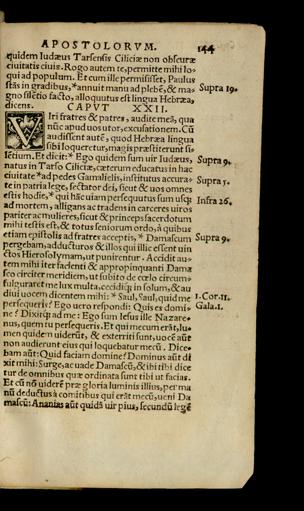 APOSTOLORVM. 144
quidem Iudæus Tarsensis Ciliciæ non obscuræ
ciuitatis ciuis. Rogo autem te, permitte mihi lo-
qui ad populum. Et cum ille permisisset, Paulus
stãs in gradibus, * annuit manu ad plebẽ, & ma- Supra 19.
gno silẽtio facto, alloquutus est lingua Hebræa,
dicens. CAPVT XXII.
VIri fratres & patres, audite meã, qua
nũc apud vos utor, excusationem. Cũ
audissent autẽ, quod Hebræa lingua
sibi loqueretur, magis præstiterunt si-
lẽtium. Et dicit: * Ego quidem sum uir Iudæus, Supra 9.
natus in Tarso Ciliciæ, cæterum educatus in hac
ciuitate * ad pedes Gamalielis, institutus accura- Supra 5.
te in patria lege, sectator dei, sicut & uos omnes
estis hodie, * qui hãc uiam persequutus sum usq; Infra 26.
ad mortem, alligans ac tradens in carceres uiros
pariter ac mulieres, sicut & princeps sacerdotum
mihi testis est, & totus seniorum ordo, à quibus
etiam epistolis ad fratres acceptis, * Damascum Supra 9.
pergebam, adducturos & illos qui illic essent uin
ctos Hierosolymam, ut punirentur. Accidit au-
tem mihi iter facienti & appropinquanti Dama
sco circiter meridiem, ut subito de cœlo circum-
fulguraret me lux multa, cecidiq; in solum, & au
diui uocem dicentem mihi: * Saul, Saul, quid me 1. Cor. 11.
persequeris? Ego uero respondi: Quis es domi- Gala. 1.
ne? Dixitq; ad me: Ego sum Iesus ille Nazare-
nus, quem tu persequeris. Et qui mecum erãt, lu-
men quidem uiderũt, & exterriti sunt, uocẽ aũt
non audierunt eius qui loquebatur mecũ. Dice-
bam aũt: Quid faciam domine? Dominus aũt di
xit mihi: Surge, ac uade Damascũ, & ibi tibi dice
tur de omnibus quæ ordinata sunt tibi ut facias.
Et cũ nõ uiderẽ præ gloria luminis illius, per ma
nũ deductus à comitibus qui erãt mecũ, ueni Da
mascũ: Ananias aũt quidã uir pius, secundũ legẽ